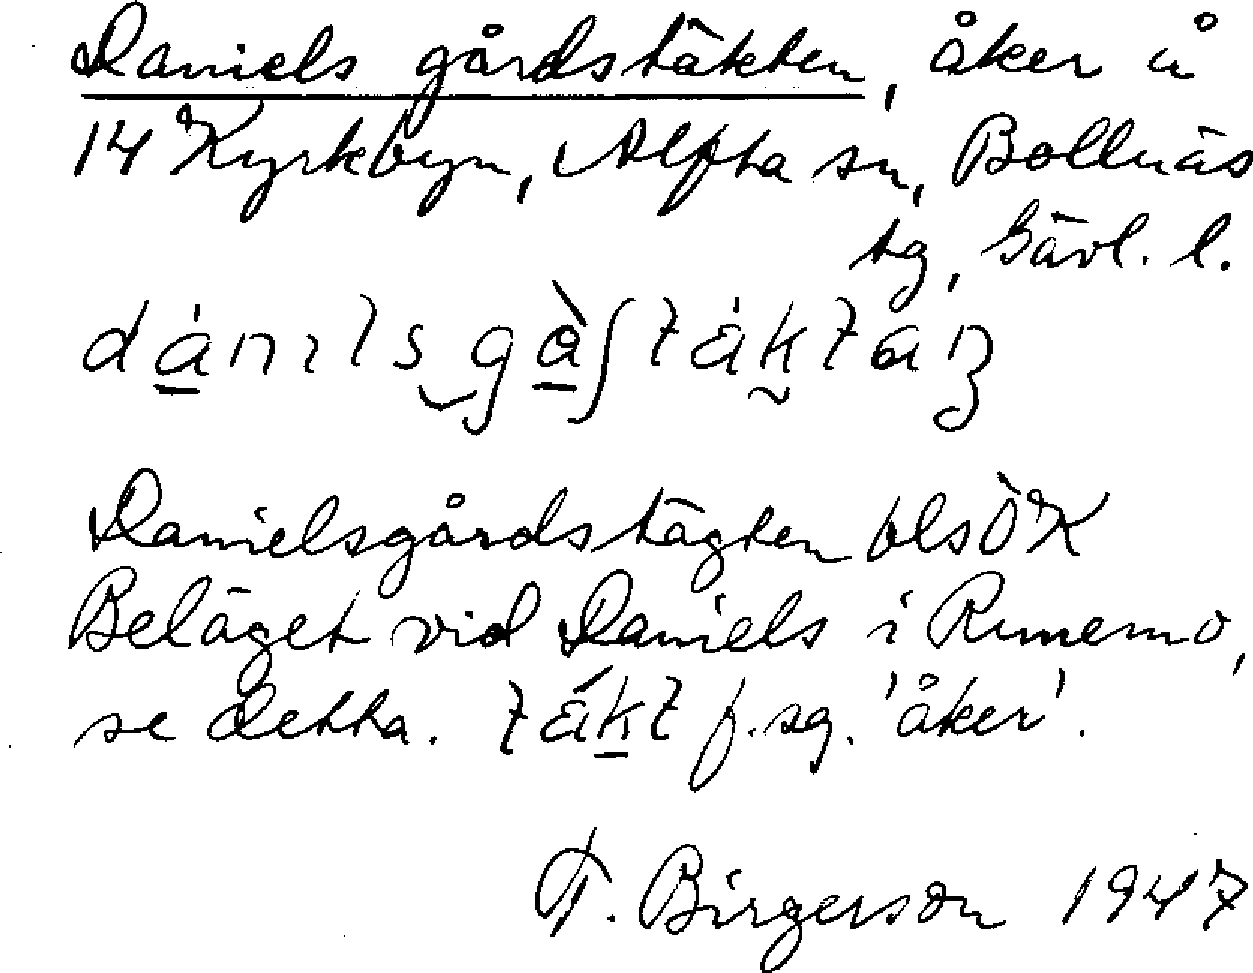 Daniels gårdstäkten, åker å
14 Kyrkbyn, Alfta sn, Bollnäs
tg, Gävl. l.
Danielsgårdstägten blsÖK
Beläget vid Daniels i Runemo,
se detta. f. sg. 'åker'.
F. Birgerson 1947